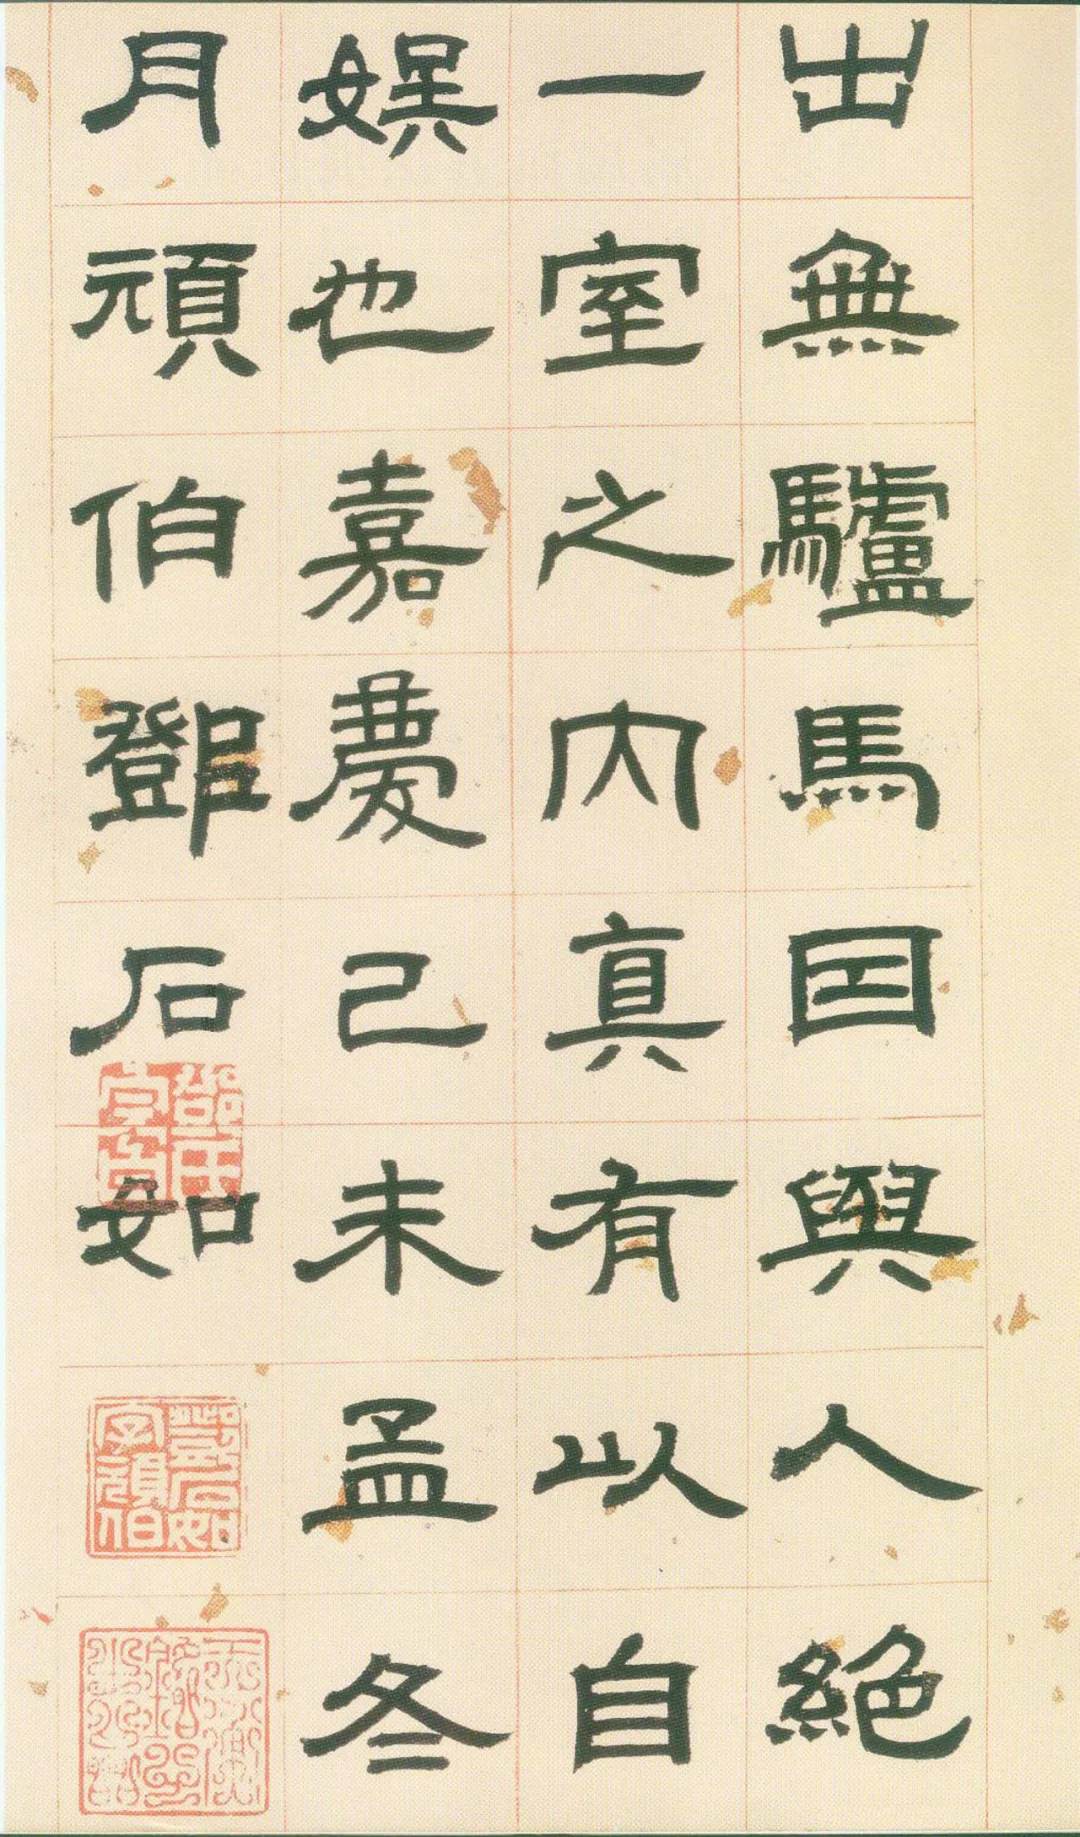 出無驢馬因與人絕
一室之内真有以自
娛也嘉慶己未孟冬
月頑伯鄧石如
鄧石如字頑伯